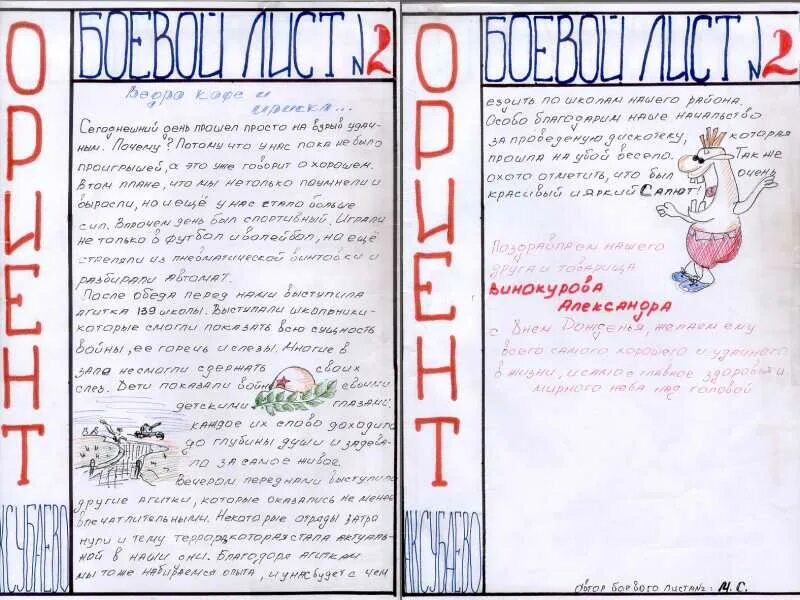 БОЕВОЙ ЛИСТ №2
ОРИЕНТ
АКСУБАЕВО
Ведра кафе и
ириски...
Сегоднешний день прошел просто на взрыв удач-
ным. Почему? Потому что у нас пока не было
проигрышей, а это уже говорит о хорошем.
В том плане, что мы нетолько поумнели и
выросли, но и ещё у нас стало больше
сил. Впрочем день был спортивный. Играли
не только в футбол и волейбол, но ещё
стреляли из пневматической винтовки и
разбирали автомат.
После обеда перед нами выступила
агитка 139 школы. Выступали школьники-
которые смогли показать всю сущность
войны, ее горечь и слезы. Многие в
зале несмогли сдержать своих
слез. Дети показали войну своими
детскими глазами.
каждое их слово доходило
до глубины души и задева-
ло за самое живое.
Вечером перед нами выступили
другие агитки, которые оказались не менее
впечатлительными. Некоторые отряды затра
нули и тему террора, которая стала актуаль-
ной в наши дни. Благодаря агиткам
мы тоже набираемся опыта, и у нас будет с чем
БОЕВОЙ ЛИСТ №2
ОРИЕНТ
АКСУБАЕВО
ездить по школам нашего района.
Особо благодарим наше начальство
за проведеную дискотеку, которая
прошла на убой весело. Так же
охото отметить, что был очень
красивый и яркий Салют!
Поздравляем нашего
друга и товарища
Винокурова
Александра
с Днем Рожденья, желаем ему
всего самого хорошего и удачного
в жизни, и самое главное здоровья и
мирного неба над головой
Автор боевого листа №2: М.С.